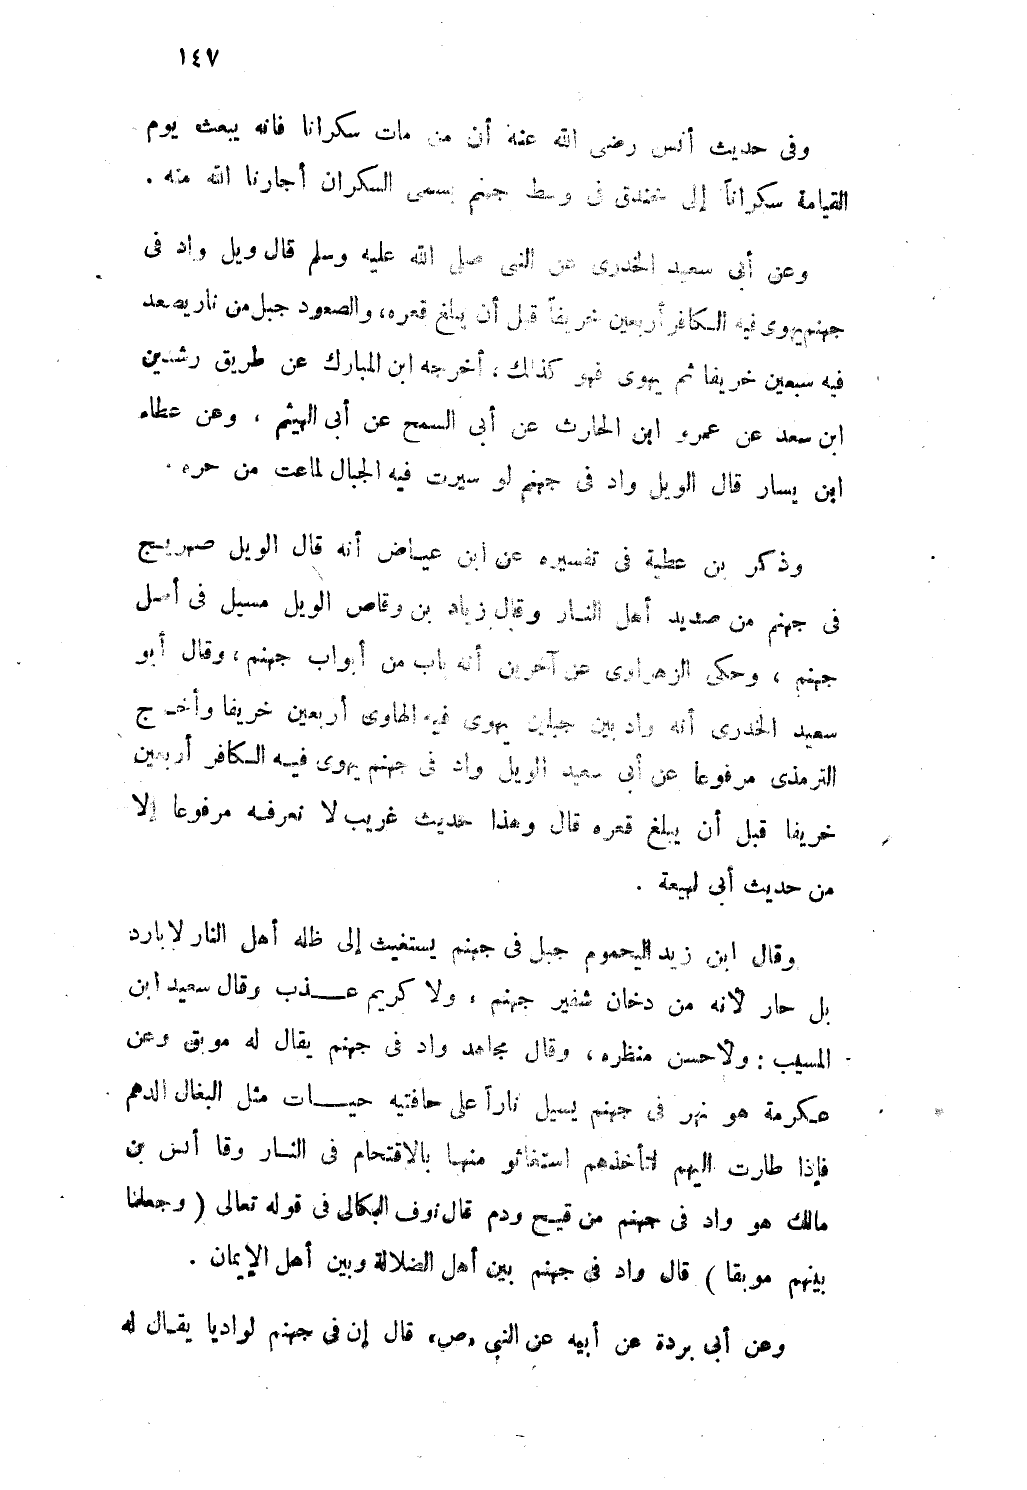 ١٤٧
وفى حديث أنس رضى الله عنه أن من مات سكرانا فانه يبعث يوم
القيامة سكراناً إلى خندق فى وسط جهنم يسمى السكران أجارنا الله منه .
وعن أبى سعيد الخدرى عن النبى صلى الله عليه وسلم قال ويل واد فى
جهنم يهوى فيه الكافر أربعين خريفاً قبل أن يبلغ قعره، والصعود جبل من نار يصعد
فيه سبعين خريفا ثم يهوى فهو كذلك ، أخرجه ابن المبارك عن طريق رشدين
ابن سعد عن عمرو ابن الحارث عن أبى السمح عن أبى الهيثم ، وعن عطاء
ابن يسار قال الويل واد فى جهنم لو سيرت فيه الجبال لماعت من حره .
وذكر بن عطية فى تفسيره عن ابن عياض أنه قال الويل صهريج
فى جهنم من صديد أهل النار وقال زياد بن وقاص الويل مسيل فى أصل
جهنم ، وحكى الزهراوى عن آخرين أنه باب من أبواب جهنم ، وقال أبو
سعيد الخدرى أنه واد بين جبلين يهوى فيه الهاوى أربعين خريفا وأخرج
الترمذى مرفوعا عن أبى سعيد الويل واد فى جهنم يهوى فيه الكافر أربعين
خريفا قبل أن يبلغ قعره قال وهذا حديث غريب لا نعرفه مرفوعا إلا
من حديث أبى لهيعة .
وقال ابن زيد اليحموم جبل فى جهنم يستغيث إلى ظله أهل النار لا بارد
بل حار لأنه من دخان شفير جهنم ، ولا كريم عذب وقال سعيد ابن
المسيب : ولا حسن منظره ، وقال مجاهد واد فى جهنم يقال له موبق وعن
عكرمة هو نهر فى جهنم يسيل ناراً على حافتيه حيات مثل البغال الدهم
فإذا طارت اليهم لتأخذهم استغاثو منها بالاقتحام فى النار وقا أنس بن
مالك هو واد فى جهنم من قيح ودم قال نوف البكالى فى قوله تعالى ( وجعلنا
بينهم موبقا ) قال واد فى جهنم بين أهل الضلالة وبين أهل الإيمان .
وعن أبى بردة عن أبيه عن النبى «ص» قال إن فى جهنم لواديا يقال له